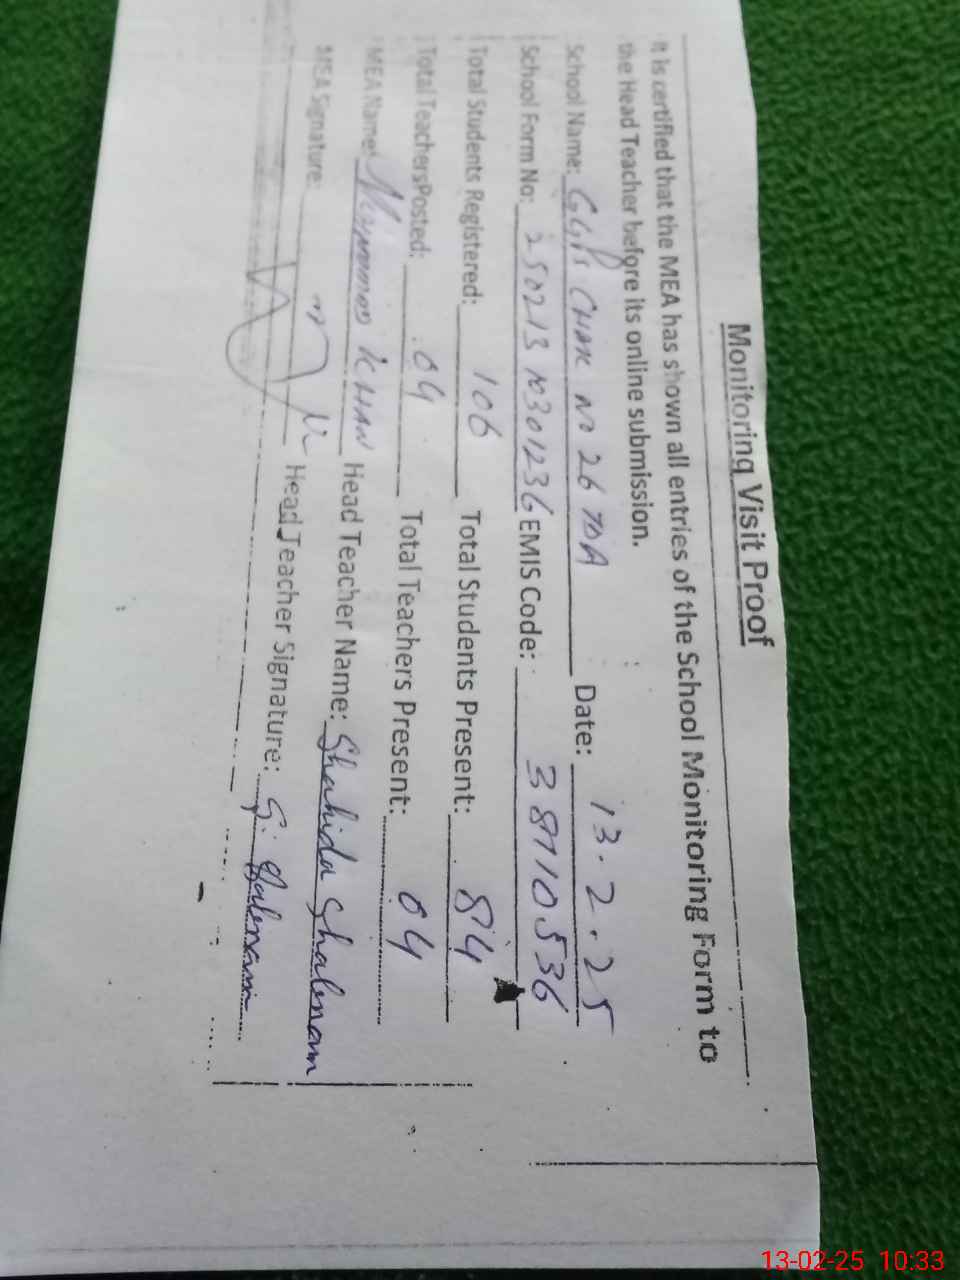 Monitoring Visit Proof
It is certified that the MEA has shown all entries of the School Monitoring Form to
the Head Teacher before its online submission.
School Name: GGPS CHAK NO 26 TDA Date: 13.2.25
School Form No: 250213 EMIS Code: 38710536
Total Students Registered: 106 Total Students Present: 84
Total TeachersPosted: 04 Total Teachers Present: 04
MEA Name: KHAN Head Teacher Name: Shahida Shabnam
MEA Signature: Head Teacher Signature: S. Shabnam
13-02-25 10:33